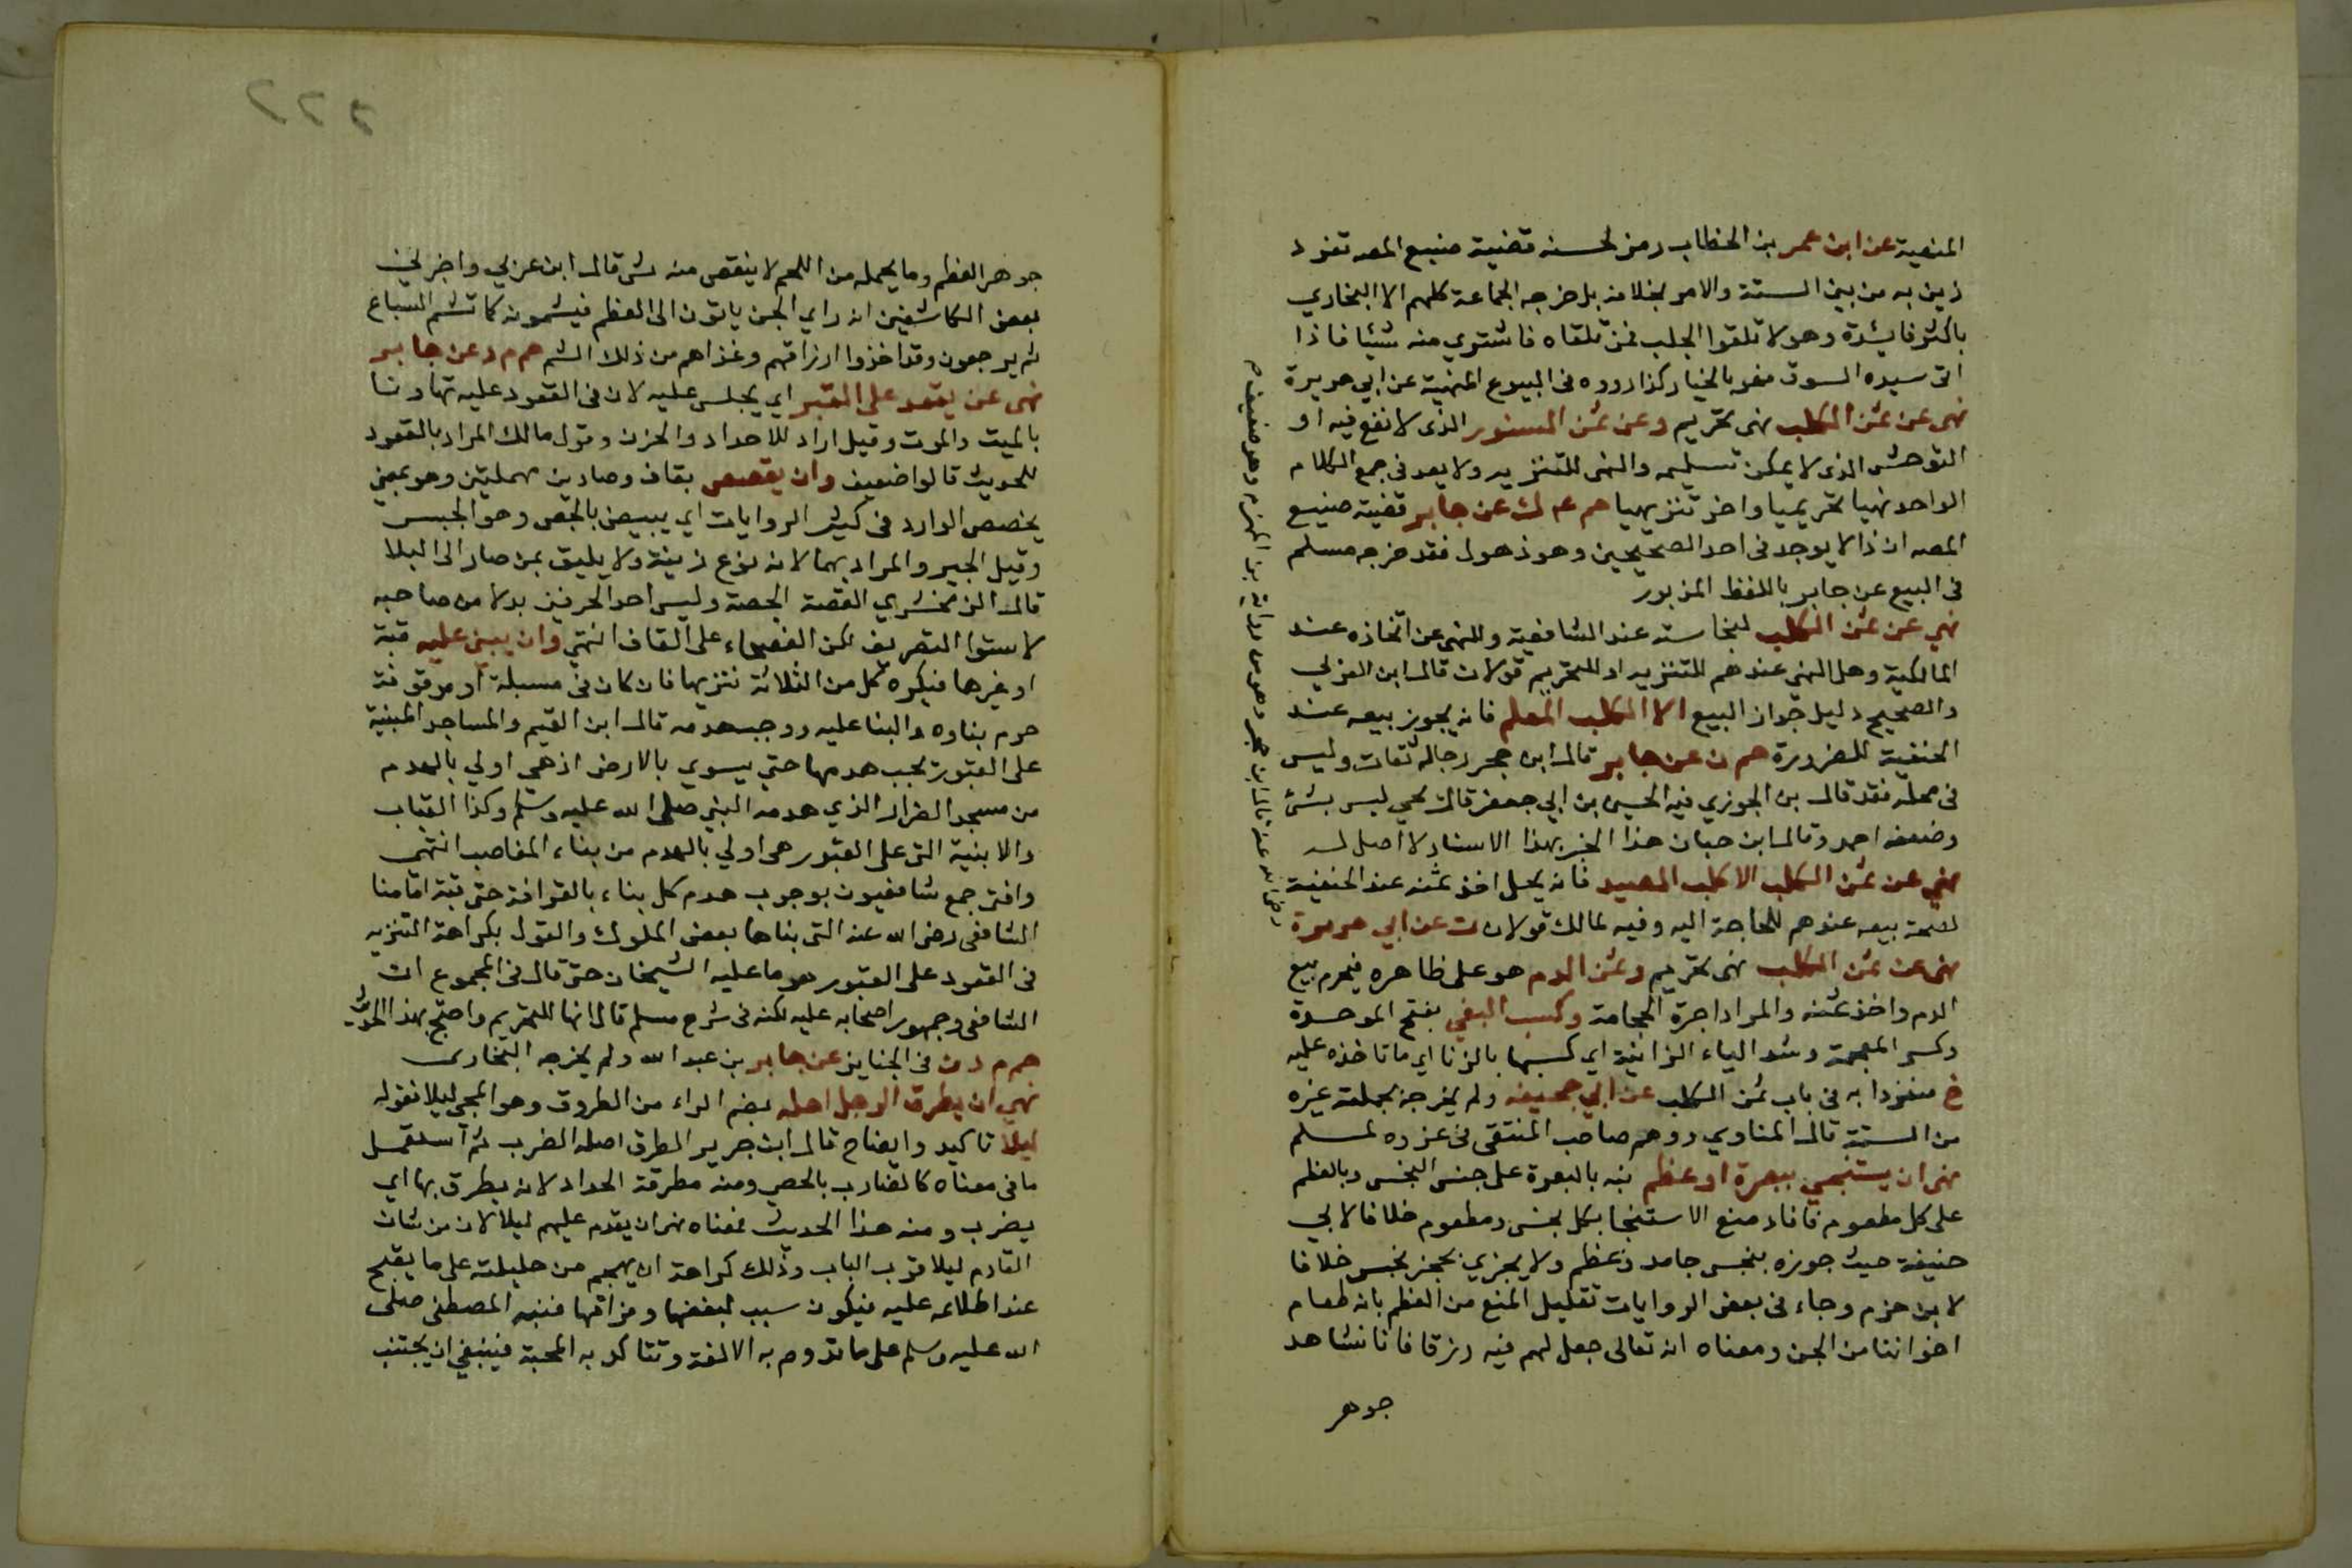 المنهية عن ابن عمر بن الخطاب رمز لحسنه قضية صنيع المصه تفرد
ذين به من بين الستة والامر بخلافه بل خرجه الجماعة كلهم الا البخاري
باكثر فايدة وهو لا تلقوا الجلب فمن تلقاه فاشتري منه شيئا فاذا
اتى سيده السوق فهو بالخيار كذا رووه فى البيوع المنهية عن ابي هريرة
نهى عن ثمن الكلب نهى تحريم وعن ثمن السنور الذى لا نفع فيه او
التوحش الذى لا يمكن تسليمه والنهى للتنزيه ولا بعد فى جمع الكلام
الواحد نهيا تحريميا واخر تنزيهيا حم ع ك عن جابر قضية صنيع
المصه ان ذا لا يوجد فى احد الصحيحين وهو ذهول فقد خرجه مسلم
فى البيع عن جابر باللفظ المزبور
نهي عن ثمن الكلب لنجاسته عند الشافعية وللنهى عن اتخاذه عند
المالكية وهل النهى عندهم للتنزيه او للتحريم قولان قال ابن العربي
والصحيح دليل جواز البيع الا الكلب المعلم فانه يجوز بيعه عند
الحنفية للضرورة حم ن عن جابر قال ابن حجر رجاله ثقات وليس
فى محله فقد قال بن الجوزي فيه الحسين بن ابي جعفر قال يحي ليس بشئ
وضعفه احمد وقال ابن حبان هذا الخبر بهذا الاسناد لا اصل له
نهي عن ثمن الكلب الا كلب الصيد فانه يحل اخذ ثمنه عند الحنفية
لصحة بيعه عندهم للحاجة اليه وفيه لمالك قولان ت عن ابي هريرة
نهى عن ثمن الكلب نهى تحريم وثمن الدم هو على ظاهره فيحرم بيع
الدم واخذ ثمنه والمراد اجرة الحجامة وكسب البغي بفتح الموحدة
وكسر المعجمة وشد الياء الزانية اي كسبها بالزنا اي ما تاخذه عليه
خ منفردا به فى باب ثمن الكلب عن ابي جحيفه ولم يخرجه بجملته غيره
من الستة قال المناوي ووهم صاحب المنتقى فى عزوه لمسلم
نهى ان يستنجي ببعرة او عظم نبه بالبعرة على جنس النجس وبالعظم
على كل مطعوم فافاد منع الاستنجا بكل نجس ومطعوم خلافا لابي
حنيفة حيث جوزه بنجس جامد وعظم ولا يجزي بحجر نجس خلافا
لابن حزم وجاء فى بعض الروايات تعليل المنع من العظم بانه طعام
اخواننا من الجن ومعناه ان تعالى جعل لهم فيه رزقا فانا نشاهد
جوهر
٢٢٢
جوهر العظم وما يحمله من اللحم لا ينقص منه شى قال ابن عربي واخبرني
بعض الكاشفين انه راي الجن ياتون الى العظم فيشمونه كما تشم السباع
ثم يرجعون وقد اخذوا ارزاقهم وغذاهم من ذلك الشم حم م د عن جابر
نهى عن يقعد على القبر اي يجلس عليه لان فى القعود عليه تهاونا
بالميت والموت وقيل اراد للاحداد والحزن وقول مالك المراد بالقعود
للحديث قالوا ضعيف وان يقصص بقاف وصادين مهملتين وهو بمعني
يخصص الوارد فى كثير الروايات اي يبيض بالجص وهو الجبس
وقيل الجير والمراد بهما لانه نوع زينة ولا يليق بمن صار الى البلا
قال الزمخشري القصة الجصة وليس احد الحرفين بدلا من صاحبه
لاستوا التصريف لكن الفصحاء على القاف انتهى وان يبنى عليه قبة
او غيرها فيكره كل من الثلاثة تنزيها فان كان فى مسبلة او موقوفة
حرم بناوه والبنا عليه ووجب هدمه قال ابن القيم والمساجد المبنية
على القبور يجب هدمها حتى يسوي بالارض اذ هي اولي بالهدم
من مسجد الضرار الذي هدمه النبي صلى الله عليه وسلم وكذا القباب
والابنية التى على القبور هى اولي بالهدم من بناء المغاصب انتهى
وافتى جمع شافعيون بوجوب هدم كل بناء بالقرافة حتى قبة امامنا
الشافعى رضى الله عنه التى بناها بعض الملوك والقول بكراهة التنزيه
فى القعود على القبور هو ما عليه الشيخان حتى قال فى المجموع ان
الشافعى وجمهور اصحابه عليه لكنه فى شرح مسلم قال انها للتحريم واحتج بهذا الحديث
حم م د ن فى الجنايز عن جابر بن عبد الله ولم يخرجه البخارى
نهي ان يطرق الرجل اهله بضم الراء من الطروق وهو المجى ليلا فقوله
ليلا تاكيد وايضاح قال ابن جرير الطرق اصله الضرب ثم استعمل
ما فى معناه كالضارب بالحصى ومنه مطرقة الحداد لانه يطرق بها اي
يضرب ومنه هذا الحديث فمعناه نهى ان يقدم عليهم ليلا لان من شان
القادم ليلا قرب الباب وذلك كراهة ان يهجم من حليلته على ما يقبح
عند اطلاعه عليه فيكون سبب لبغضها وفراقها فنبه المصطفى صلى
الله عليه وسلم على ما تدوم به الالفة وتتاكد به المحبة فينبغى ان يجتنب